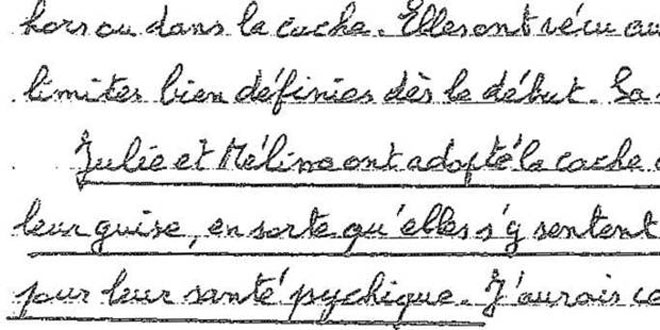 hors ou dans la cache. Elles ont vécu au
limites bien définies dès le début. La
Julie et Mélina ont adapté la cache
leur guise, en sorte qu'elles s'y sentent
pour leur santé psychique. J'aurais